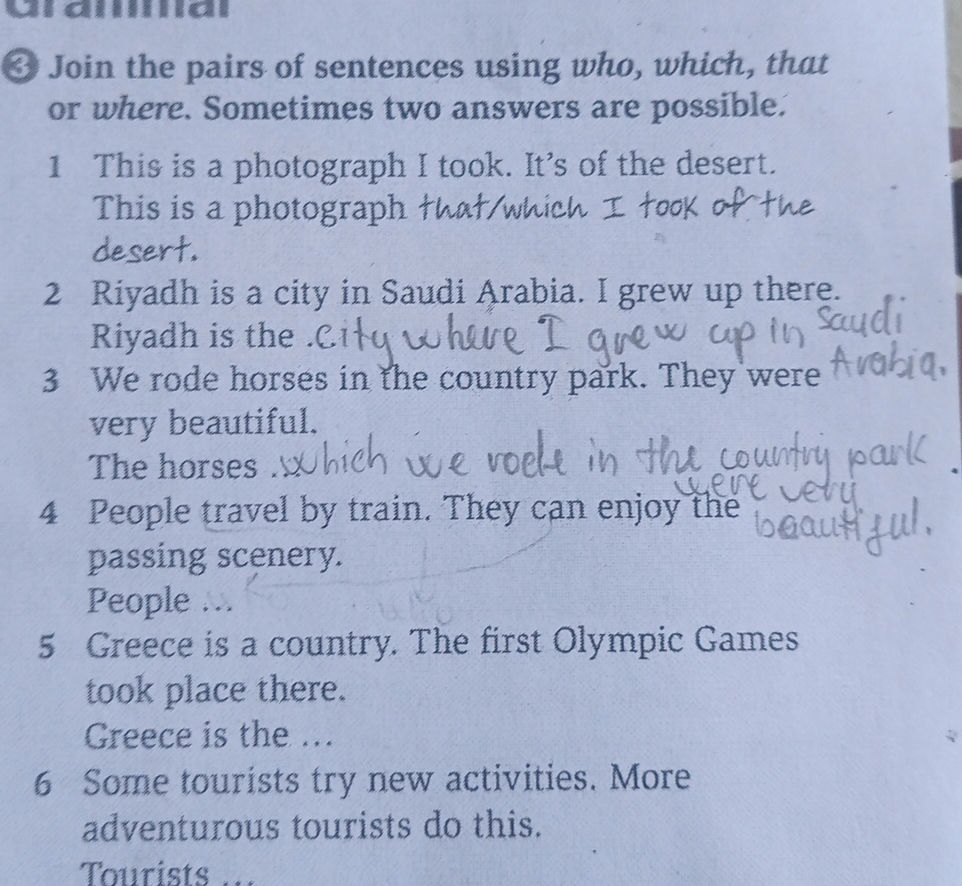 Grammar
3 Join the pairs of sentences using who, which, that
or where. Sometimes two answers are possible.
1 This is a photograph I took. It's of the desert.
This is a photograph that/which I took of the
desert.
2 Riyadh is a city in Saudi Arabia. I grew up there.
Riyadh is the . City where I grew up in Saudi
Arabia.
3 We rode horses in the country park. They were
very beautiful.
The horses . which we rode in the country park
were very
beautiful.
4 People travel by train. They can enjoy the
passing scenery.
People ...
5 Greece is a country. The first Olympic Games
took place there.
Greece is the ...
6 Some tourists try new activities. More
adventurous tourists do this.
Tourists ...